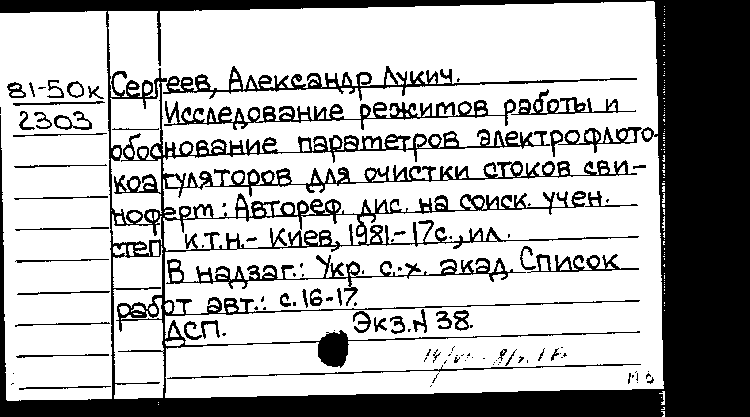 81-50к Сергеев, Александр Лукич.
2303 Исследование режимов работы и
обоснование параметров электрофлото-
коагуляторов для очистки стоков сви-
ноферм: Автореф. дис. на соиск. учен.
степ. к.т.н.- Киев, 1981.-17с., ил.
В надзаг.: Укр. с.-х. акад. Список
работ авт.: с.16-17.
ДСП. Экз.N 38.